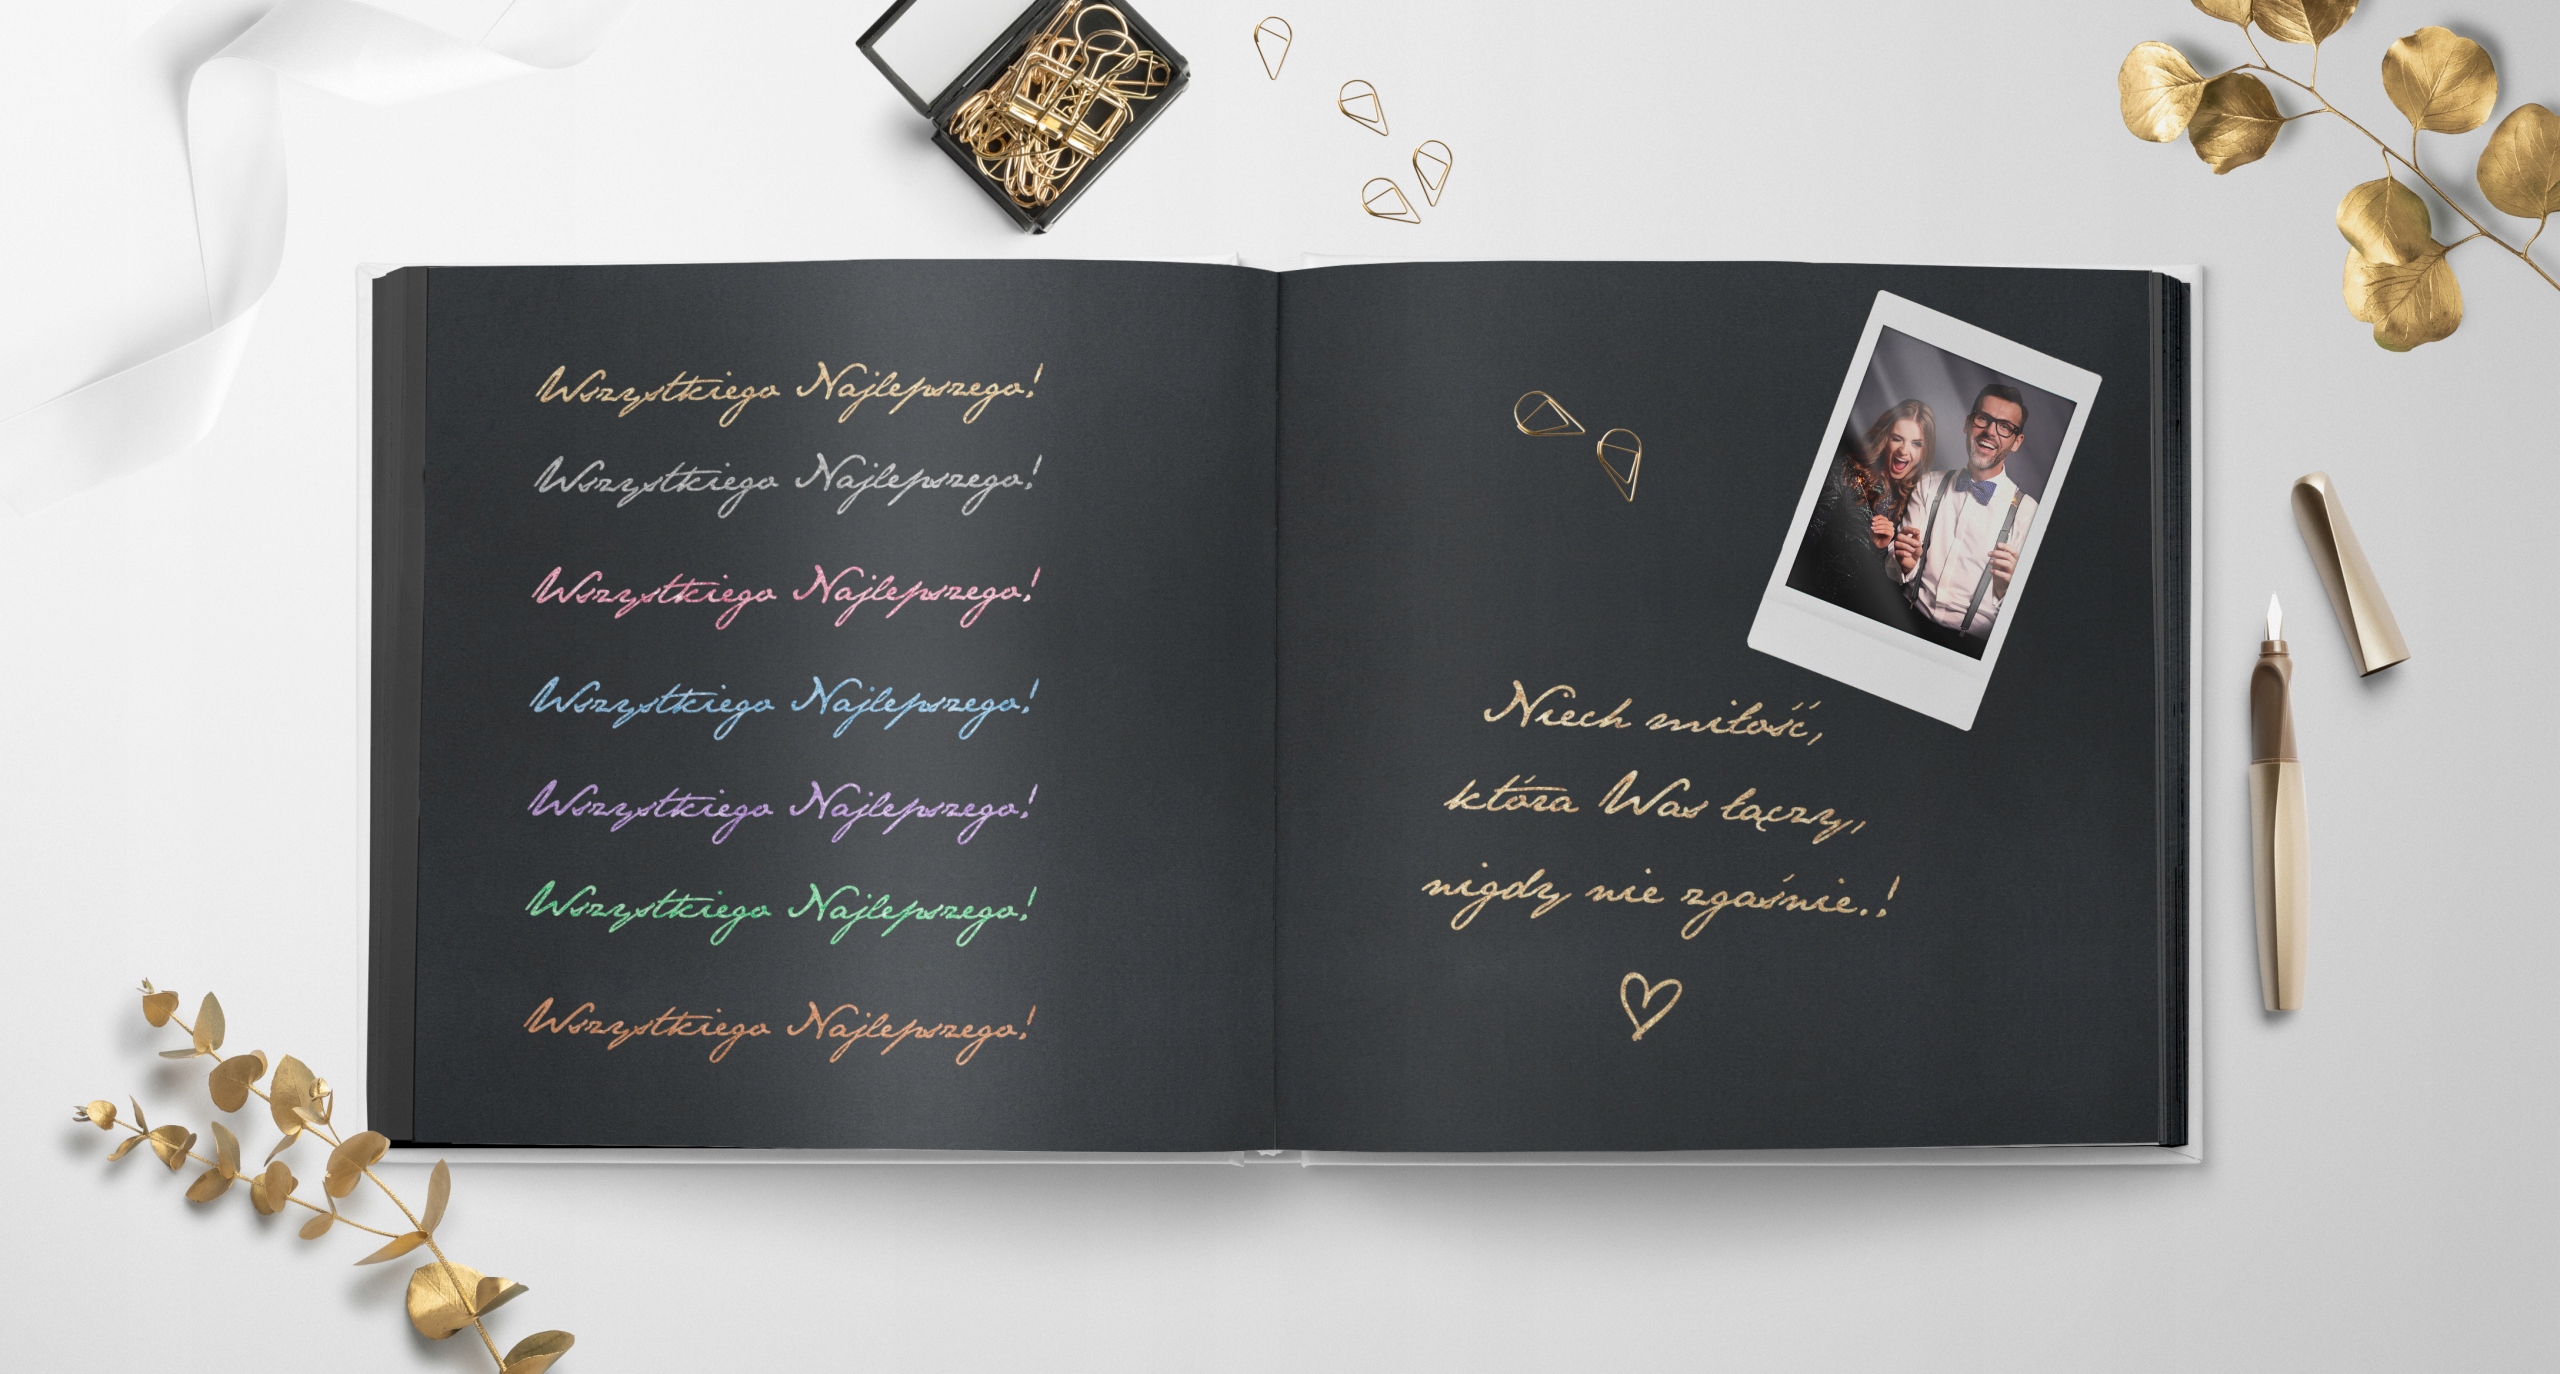 Wszystkiego Najlepszego!
Wszystkiego Najlepszego!
Wszystkiego Najlepszego!
Wszystkiego Najlepszego!
Wszystkiego Najlepszego!
Wszystkiego Najlepszego!
Wszystkiego Najlepszego!
Niech miłość,
która Was łączy,
nigdy nie zgaśnie.!